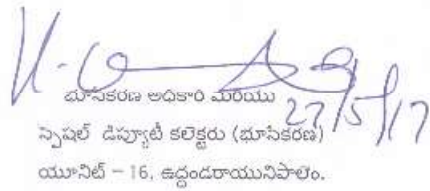 భూసేకరణ అధికారి మరియు
27/5/17
స్పెషల్ డిప్యూటీ కలెక్టరు (భూసేకరణ)
యూనిట్ - 16, ఉద్దండరాయునిపాలెం.